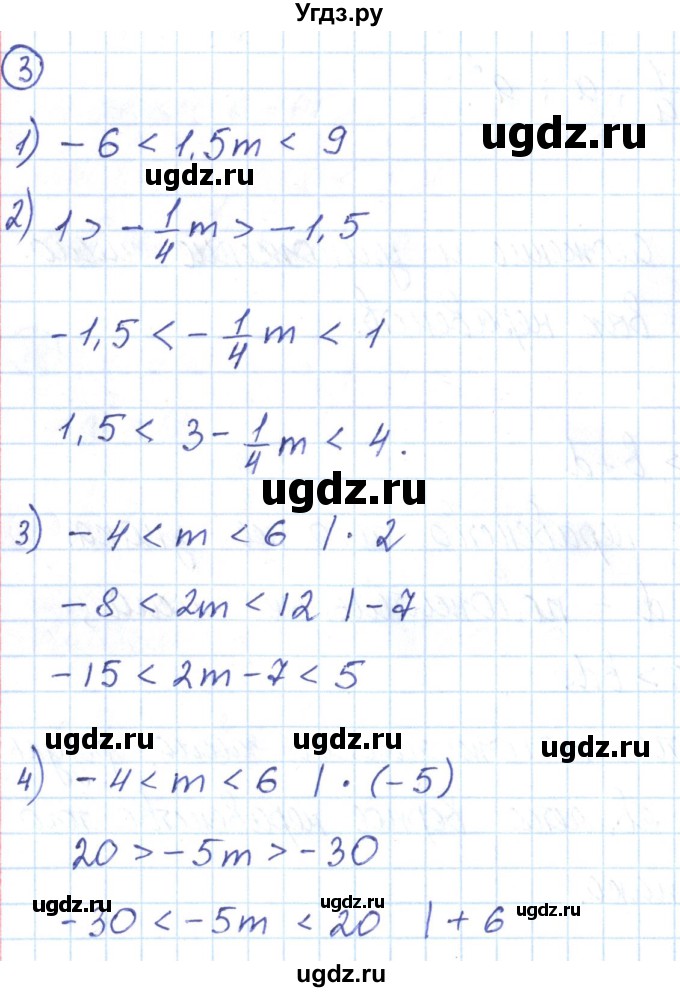 Угдз.ру
3
1) -6 < 1,5m < 9
ugdz.ru
ugdz.ru
2) 1 > -1/4 m > -1,5
-1,5 < -1/4 m < 1
1,5 < 3 - 1/4 m < 4.
ugdz.ru
3) -4 < m < 6 | · 2
-8 < 2m < 12 | -7
-15 < 2m - 7 < 5
ugdz.ru
ugdz.ru
ugdz.ru
4) -4 < m < 6 | · (-5)
20 > -5m > -30
ugdz.ru
ugdz.ru
ugdz.ru
-30 < -5m < 20 | + 6
ugdz.ru